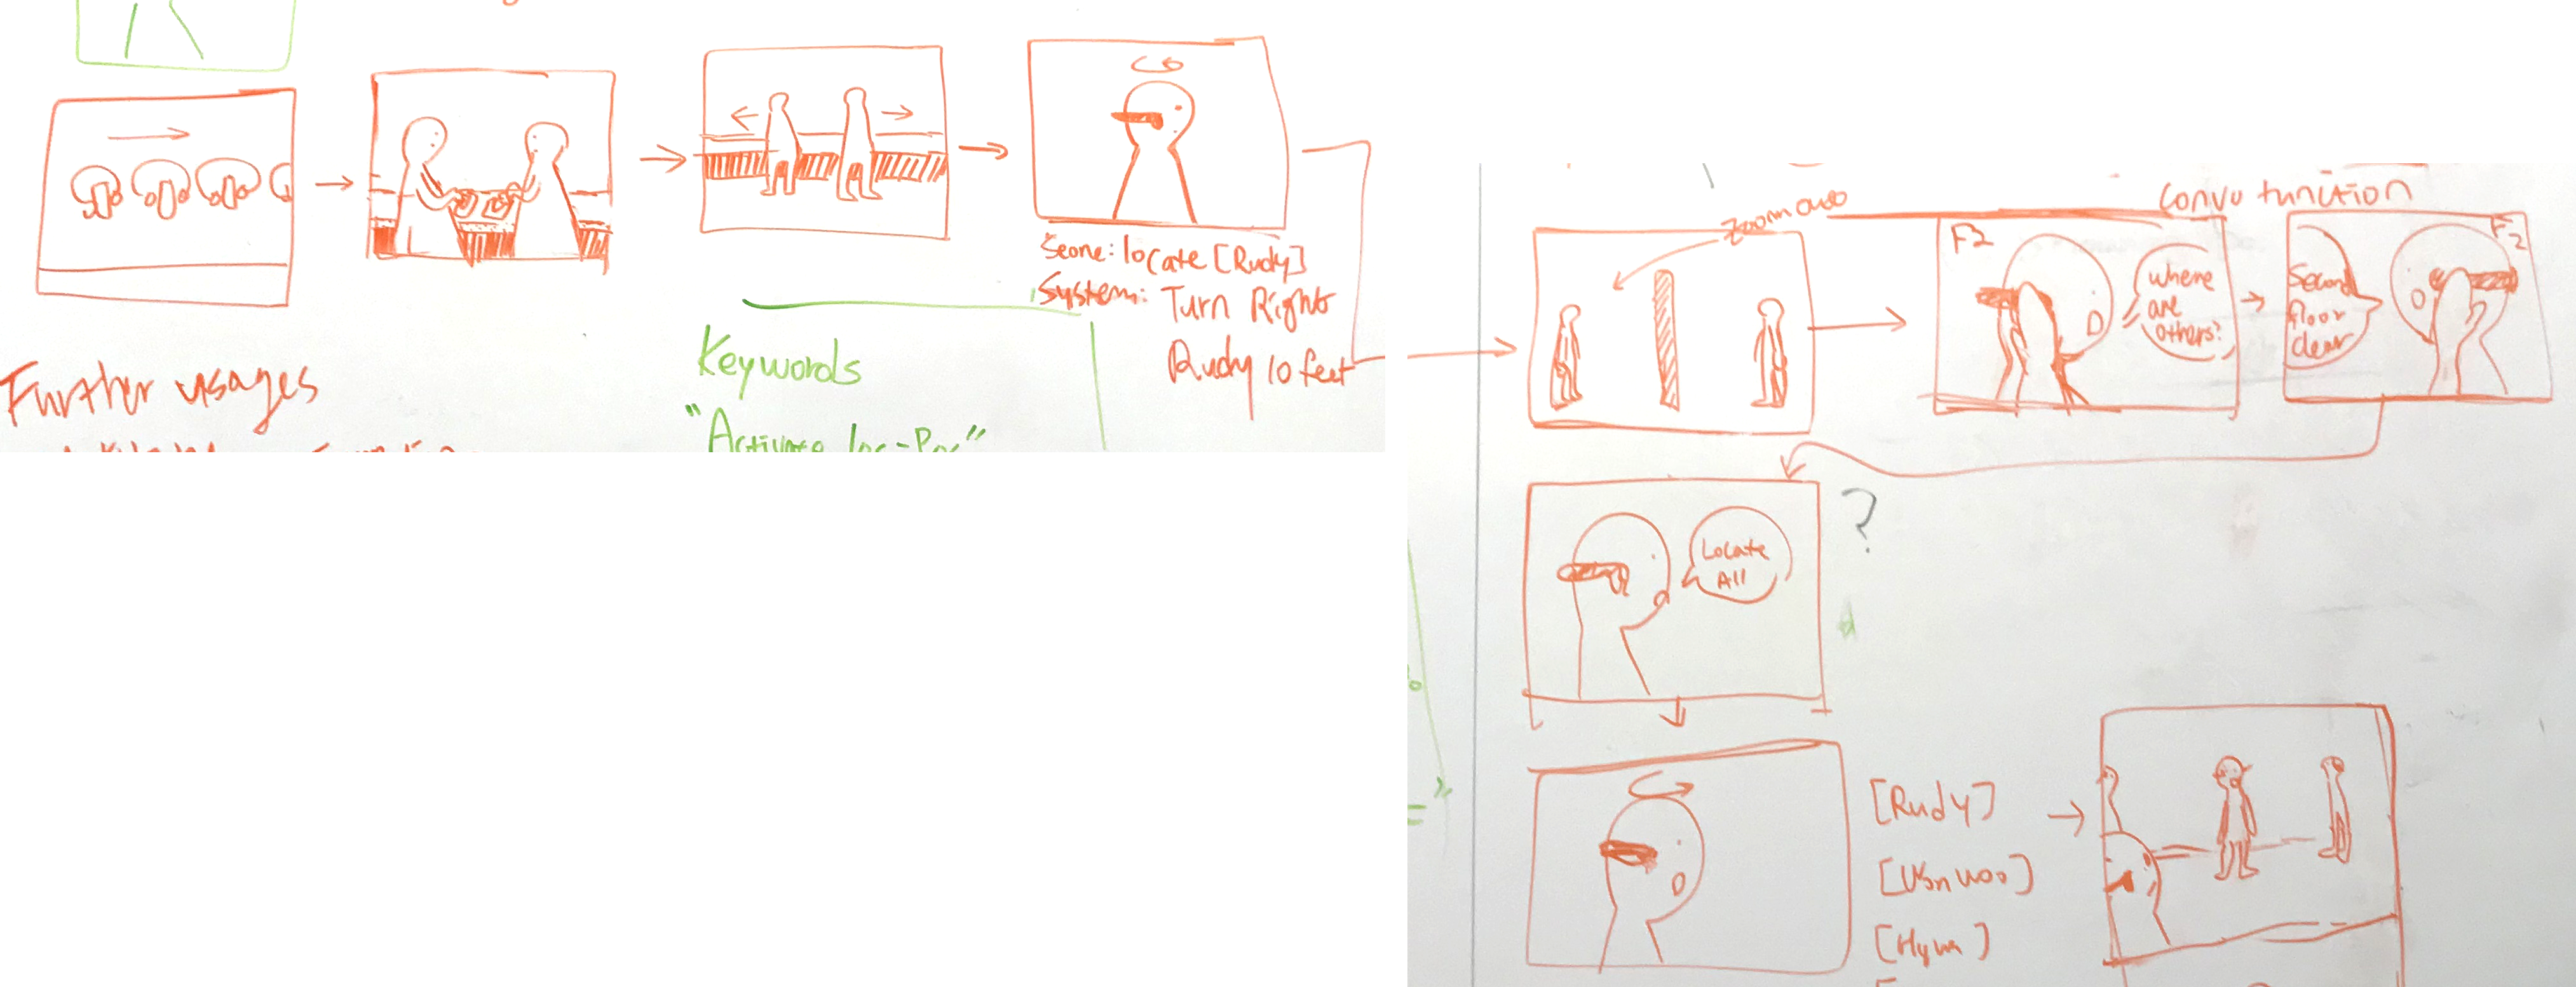 Seone: locate [Rudy]
System: Turn Right
Rudy 10 feet
Further usages
Keywords
"Activate loc-Pos"
Zoom out
Convo function
F2
Where
are
others?
F2
Second
floor
clear
Locate
All
?
[Rudy]
[Wonwoo]
[Hyun]